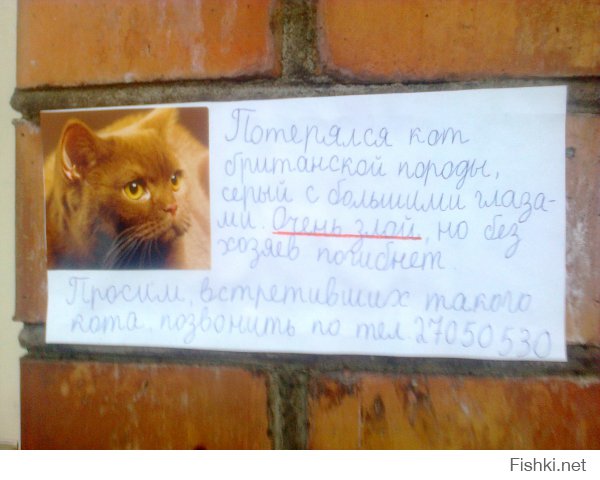 Потерялся кот
британской породы,
серый с большими глаза-
ми. Очень злой, но без
хозяев погибнет.
Просим, встретивших такого
кота позвонить по тел. 27050530
Fishki.net